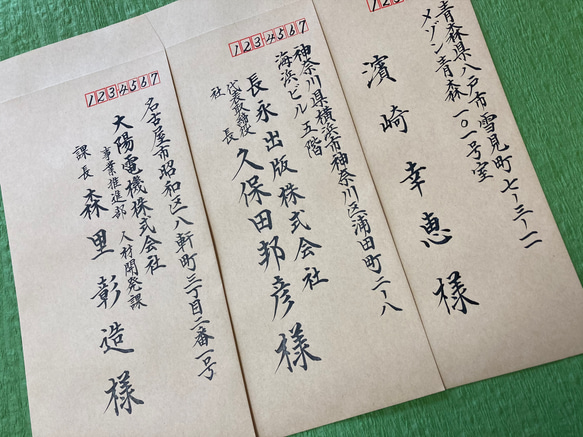 123
青森県八戸市雪見町七ー三ー二
メゾン青森一〇一号室
濱崎幸恵様
1234567
神奈川県横浜市神奈川区浦田町二ー八
海浜ビル 五階
長永出版株式会社
代表取締役社長 久保田邦彦様
1234567
名古屋市昭和区八軒町三丁目二番一号
大陽電機株式会社
事業推進部 人材開発課
課長 森里彰造様